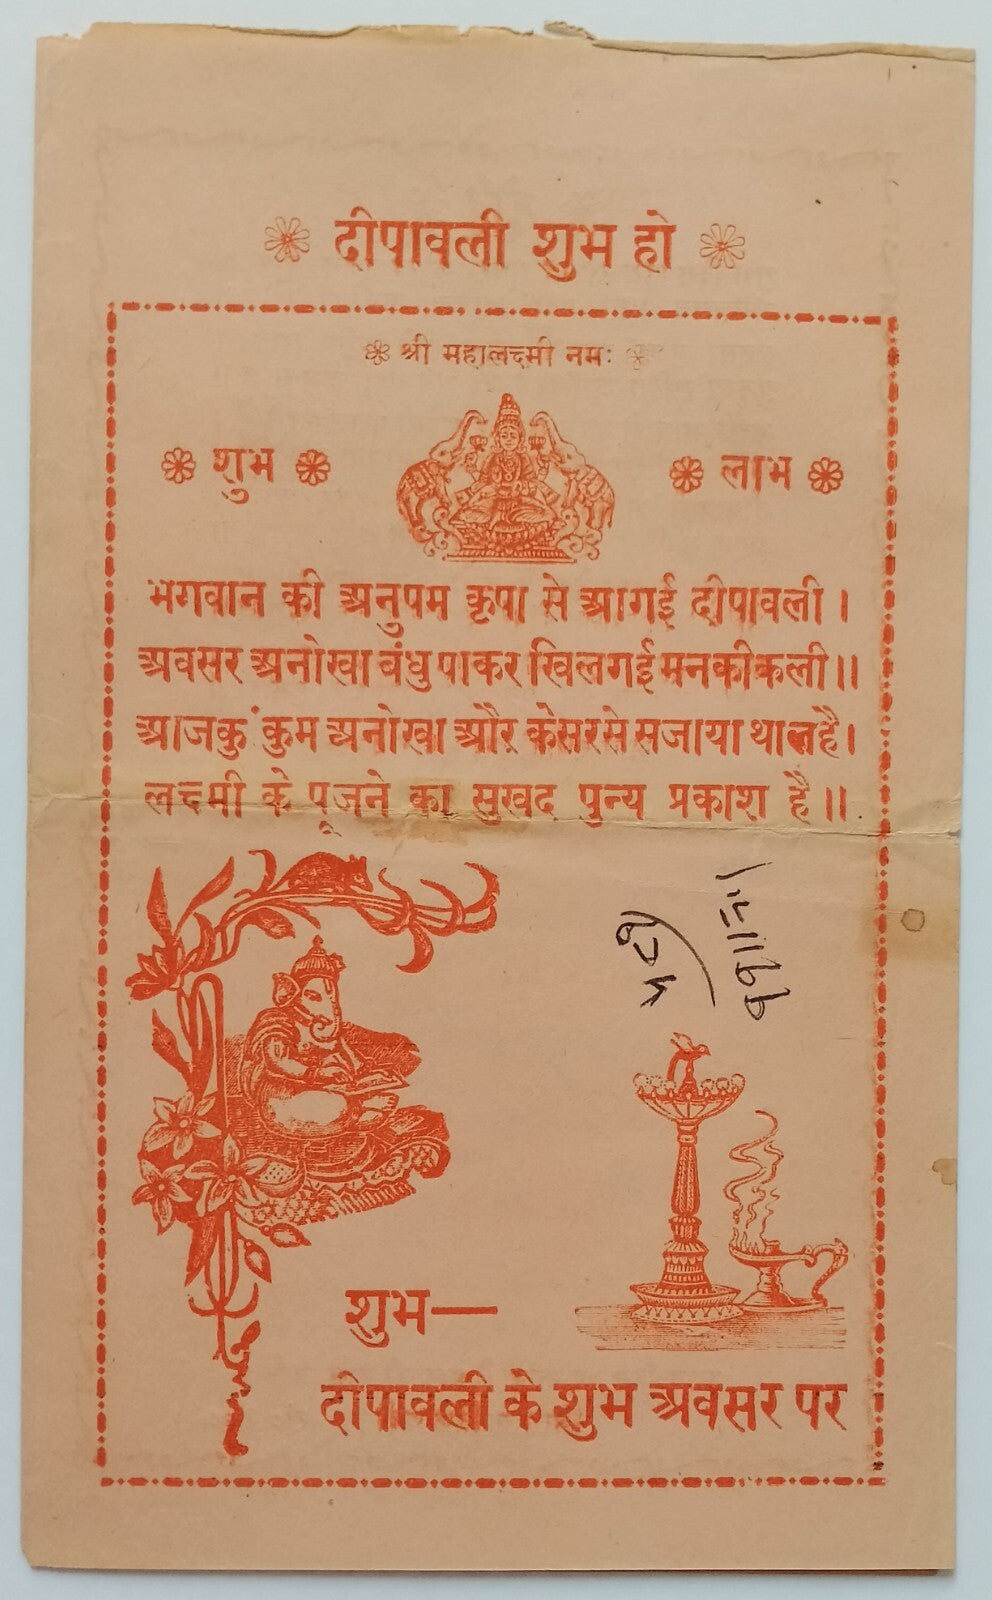 दीपावली शुभ हो
श्री महालक्ष्मी नमः
शुभ लाभ
भगवान की अनुपम कृपा से आगई दीपावली ।
अवसर अनोखा बंधु पाकर खिलगई मनकीकली ।।
आजकुंकुम अनोखा और केसरसे सजाया थाल है।
लक्ष्मी के पूजने का सुखद पुन्य प्रकाश है ।।
शुभ—
दीपावली के शुभ अवसर पर